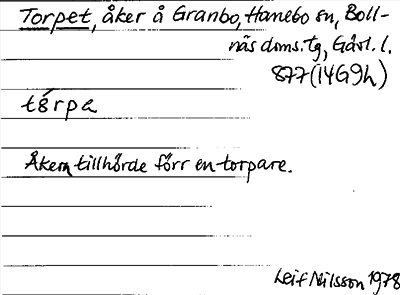 Torpet, åker å Granbo, Hanebo sn, Boll-
näs doms. tg, Gävl. l.
877 (14G9h)
tɷ́rpa
Åkern tillhörde förr en torpare.
Leif Nilsson 1978